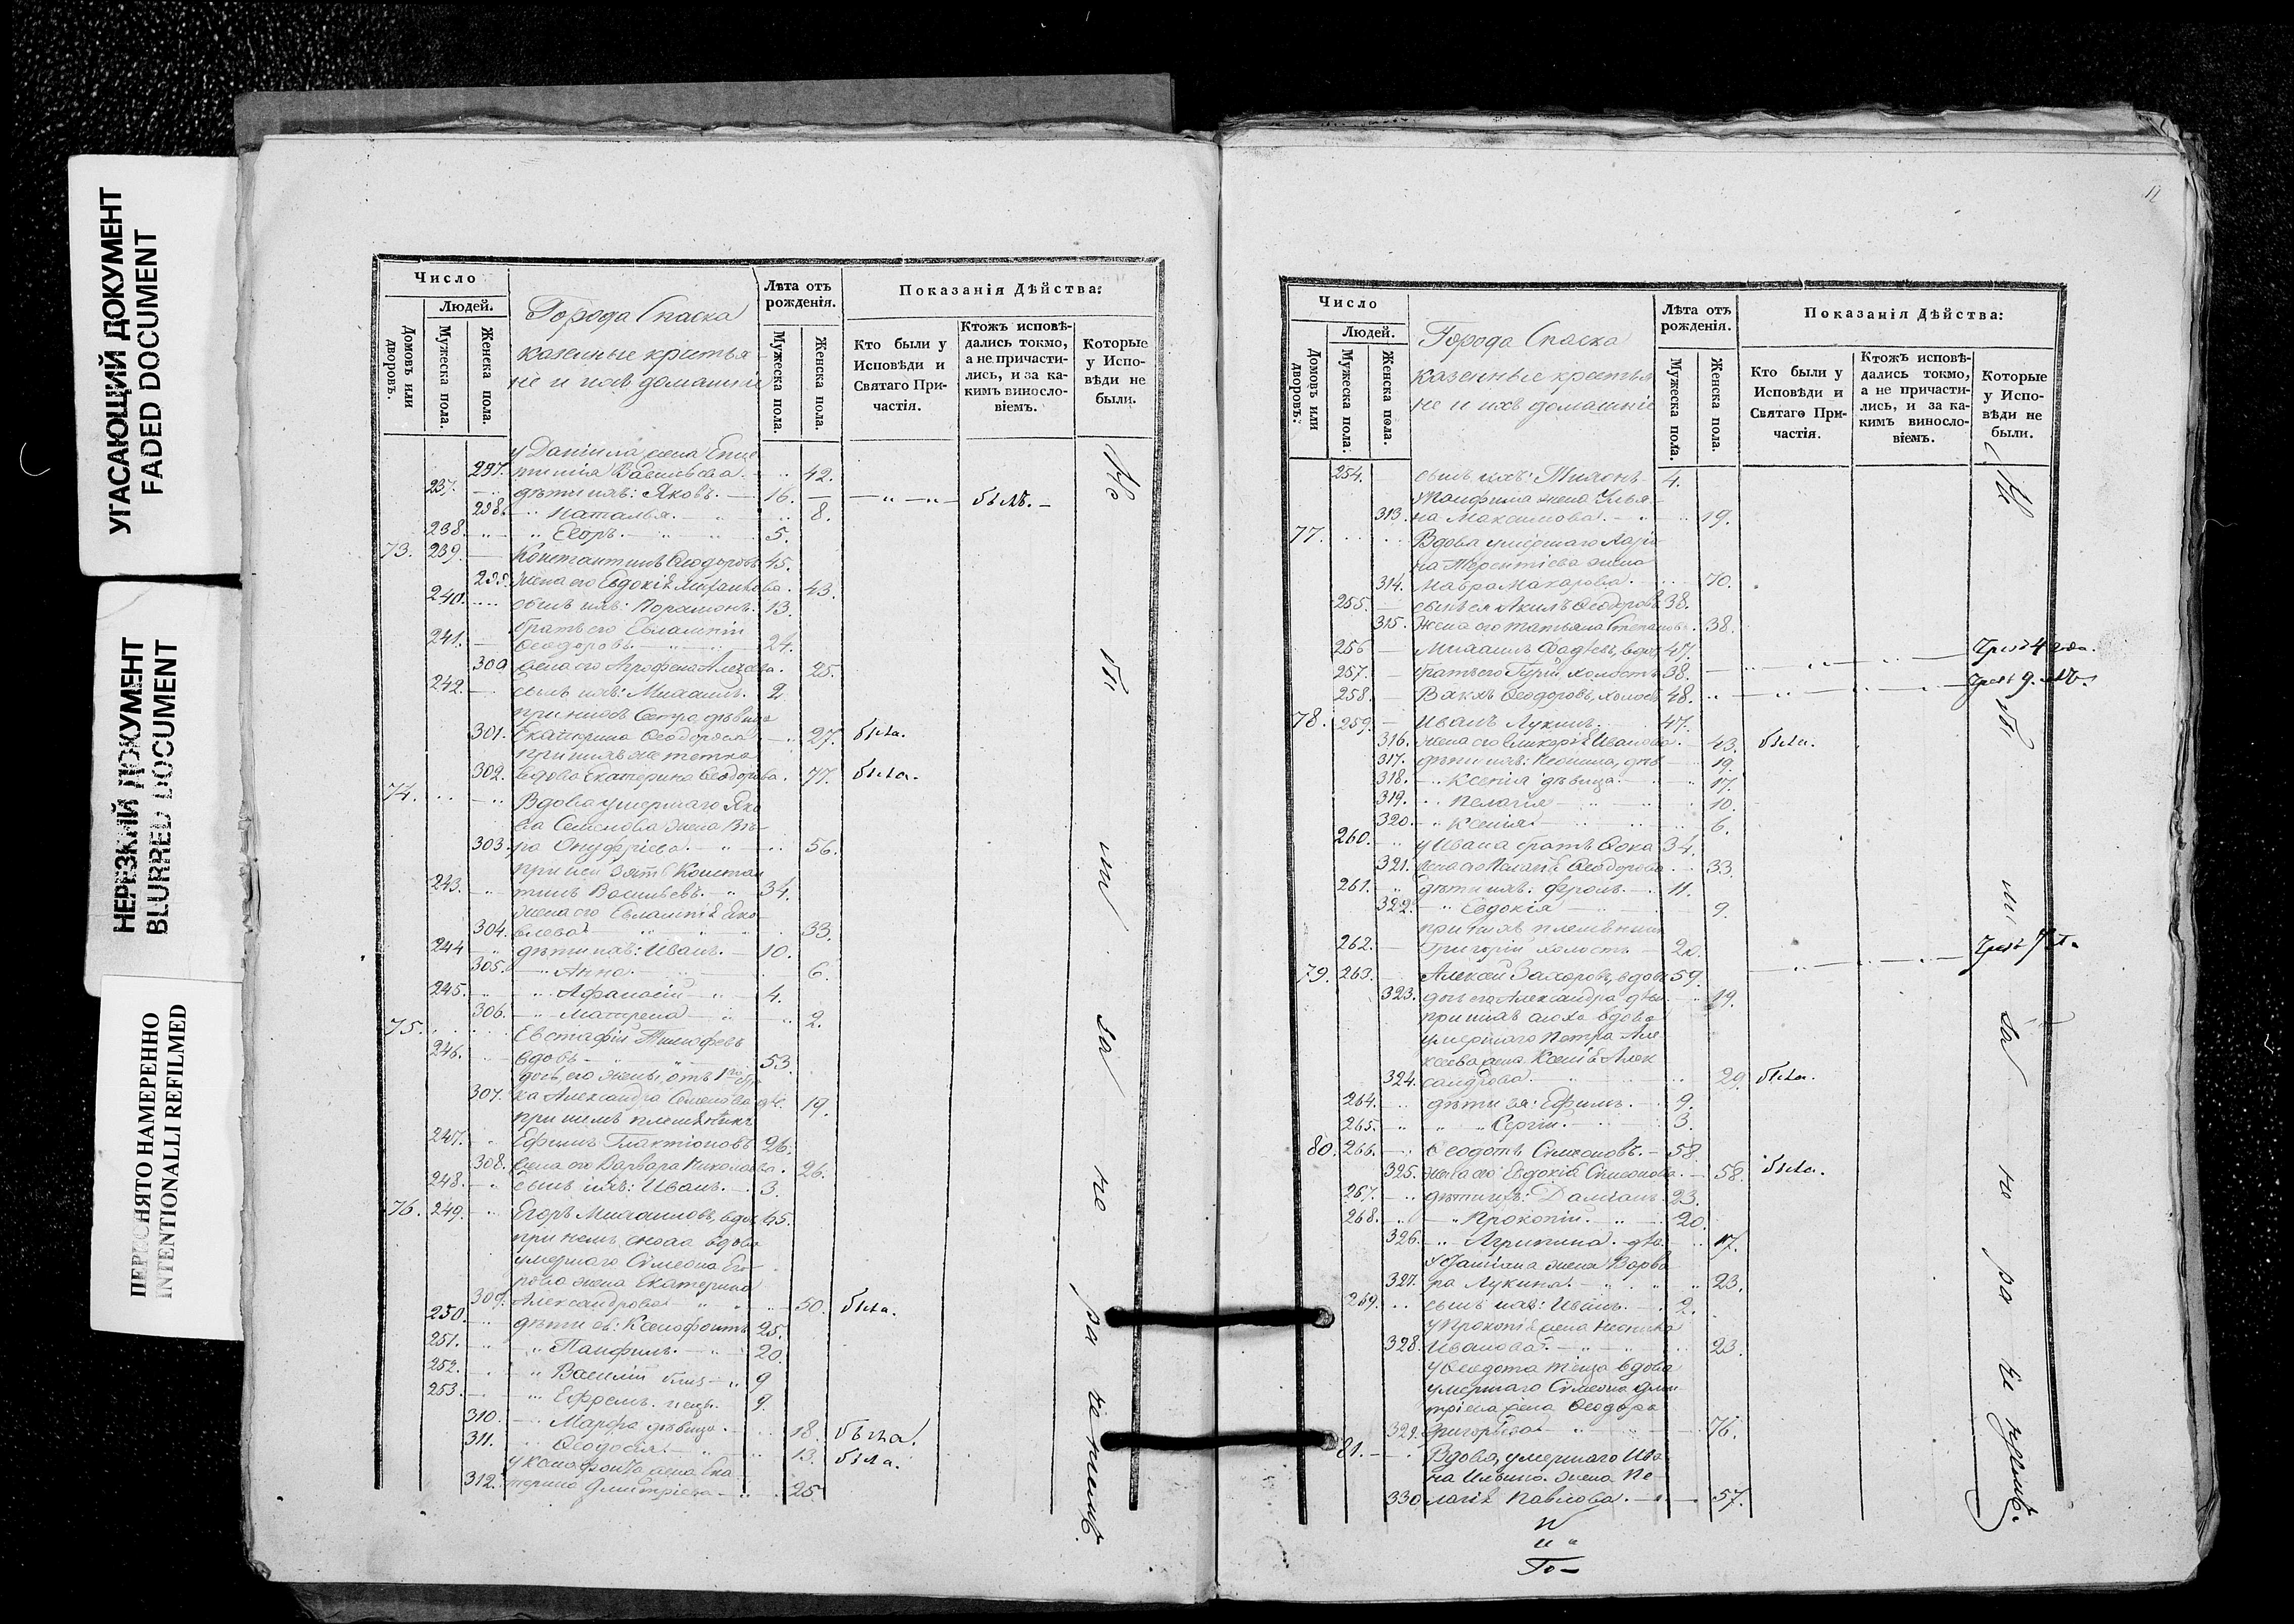 УГАСАЮЩИЙ ДОКУМЕНТ
FADED DOCUMENT
НЕРЕЗКИЙ ДОКУМЕНТ
BLURRED DOCUMENT
ПЕРЕСНЯТО НАМЕРЕННО
INTENTIONALLI REFILMED
Число
Людей.
Домовъ или дворовъ.
Мужеска пола.
Женска пола.
Города Спаска
казенные крестья
не и ихъ домашніе
Лѣта отъ рожденія.
Мужеска пола.
Женска пола.
Показанія Дѣйства:
Кто были у Исповѣди и Святаго Причастія.
Ктожъ исповѣдались токмо, а не причастились, и за какимъ винословіемъ.
Которые у Исповѣди не были.
у Даніила жена
297. Васильева. 42.
237. дѣти ихъ: Яковъ. 16. былъ.
298. Наталья. 8.
238. Егоръ. 5.
73. 239. Константинъ Ѳеодоровъ 45.
299. жена его Евдокія Михайлова. 43.
240. сынъ ихъ: Парамонъ. 13.
братъ его Евлампій
241. Ѳеодоровъ 24.
300 жена его Агрофена Алексеева. 25.
242. сынъ ихъ: Михаилъ. 2
при нихъ сестра дѣвица
301. Екатерина Ѳеодорова 27. была.
при нихъ же тетка
302. вдова Екатерина Ѳеодорова. 77. была.
74. Вдова умершаго Яко
ва Семенова жена Вѣ-
303. ра Онуфріева. 56.
при ней зять Констан
243. тинъ Васильевъ. 34.
жена его Евлампія Яко
304. влева 33.
244 дѣти ихъ: Иванъ. 10.
305. Анна. 6.
245. Афанасій 4.
306. Матрена 2.
75. Евстафій Тимофеевъ
246. вдовъ 53.
дочь его жены, отъ 1го бра
307. ка Александра Семенова дѣв. 19.
при немъ племянникъ
247. Ефимъ Галактіоновъ 26.
308. жена его Варвара Николаева. 26.
248. сынъ ихъ: Иванъ. 3.
76. 249. Егоръ Михаиловъ, вдов. 65.
при немъ сноха вдова
умершаго Симеона Его-
рова жена Екатерина
309. Александрова 50. была.
250. дѣти ея: Ксенофонтъ 25.
251. Панфилъ. 20.
252. Василій близ. 9
253. Ефремъ. нецы. 9.
310. Марфа дѣвица. 18. была.
311. Ѳеодосія 13. была.
у Ксенофонта жена Ека
312. терина Дмитріева 25
11
Число
Людей.
Домовъ или дворовъ:
Мужеска пола.
Женска пола.
Города Спаска
казенные крестья
не и ихъ домашніе
Лѣта отъ рожденія.
Мужеска пола.
Женска пола.
Показанія Дѣйства:
Кто были у Исповѣди и Святаго Причастія.
Ктожъ исповѣдались токмо, а не причастились, и за какимъ винословіемъ.
Которые у Исповѣди не были.
254. сынъ ихъ: Тихонъ 4.
у Панфила жена Улья
313. на Максимова. 19.
77. Вдова умершаго
на Терентіева жена
314. Мавра Макарова. 70.
255. сынъ ея Акимъ Ѳеодоровъ. 38.
315. жена его Татьяна Степанова. 38.
256 Михаилъ Фадѣевъ, вдовъ 47.
257. братъ его Гурій холостъ 38.
258. Вакхъ Ѳеодоровъ, холостъ 48.
78. 259. Иванъ Лукинъ. 47.
316. жена его Гликерія Иванова. 43. была.
317. дѣти ихъ: Неонила, дѣв. 19.
318. Ксенія дѣвица. 17.
319. Пелагія 10.
320. Ксенія 6.
260. у Ивана братъ Ѳока 34.
321. жена его Пелагія Ѳеодорова. 33.
261. дѣти ихъ: Фролъ. 11.
322. Евдокія 9.
при нихъ племянникъ
262. Григорій холостъ
79. 263. Алексѣй Захаровъ, вдовъ 59.
323. дочь его Александра дѣв. 19.
при нихъ сноха вдова
умершаго Петра Але
ксеева жена Ксенія Алек
324. сандрова. 29. была.
264. дѣти ея: Ефимъ. 9.
265. Сергій. 3.
80. 266. Ѳеодотъ Симеоновъ. 58.
325. жена его Евдокія Симеонова. 58. была.
267. дѣти ихъ: Даміанъ 23.
268. Прокопій. 20.
326. Агрипина. дѣв. 17.
у Даміана жена Варва
327. ра Лукина 23.
269. сынъ ихъ: Иванъ. 2.
у Прокопія жена Неонила
328. Иванова. 23.
у Ѳеодота теща вдова
умершаго Симеона Дми
тріева жена Ѳеодора
329. Григорьева 76.
81. Вдова, умершаго Ива
на Ильина жена Пе-
330 лагія Павлова. 57.